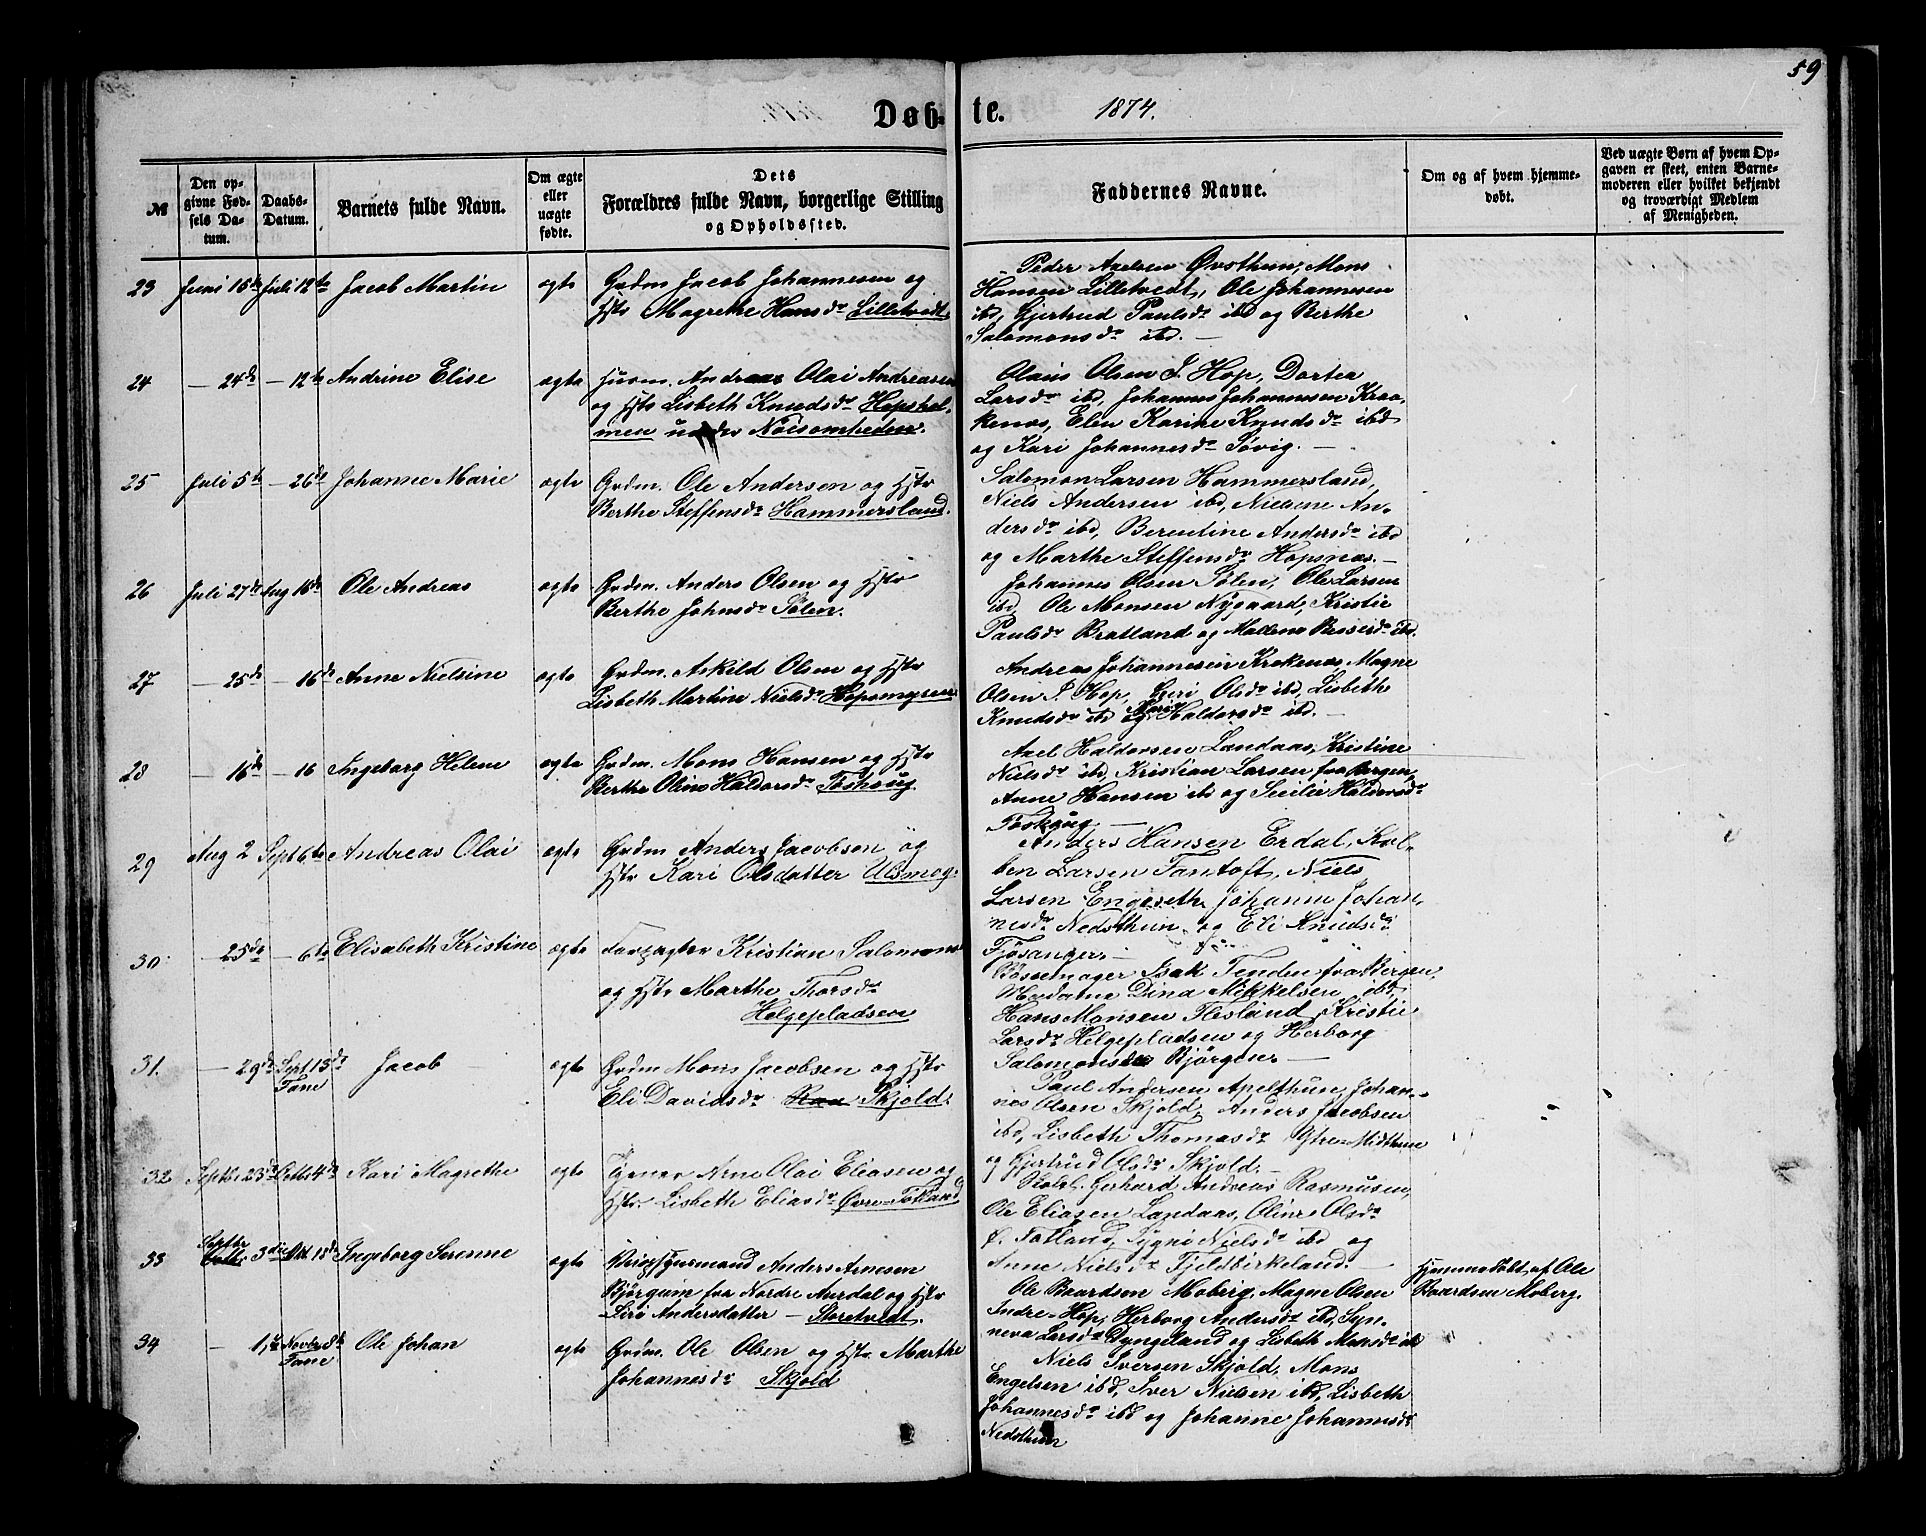 59
Døb- te. 1874.
№
Den op-
givne Fød-
sels Da-
tum.
Daabs-
Datum.
Barnets fulde Navn.
Om ægte
eller
uægte
fødte.
Dets
Forældres fulde Navn, borgerlige Stilling
og Opholdssted.
Faddernes Navne.
Om og af hvem hjemme-
døbt.
Ved uægte Børn af hvem Op-
gaven er skeet, enten Barne-
moderen eller hvilket bekjendt
og troværdigt Medlem
af Menigheden.
23 Juni 15de Juli 12te Jacob Martin ægte Grdm Jacob Johannesen og
Hstr Magrethe Hansdr Lilletvedt.
Peder Axelsen Øvsthun, Mons
Hansen Lilletvedt, Ole Johannesen
ibd, Gjertrud Paulsdr ibd og Berthe
Salomonsdr ibd. —
24 — 24de — 12te Andrine Elise ægte Huusm. Andreas Olai Andreasen
og Hstr Lisbeth Knudsdr Hopshol-
men under Nøisomheden.
Olaus Olsen I. Hop, Dortea
Larsdr ibd, Johannes Johannesen Kraa-
kenæs, Elen Karine Knudsdr ibd
og Kari Johannesdr Søvig. —
25 Juli 5te — 26de Johanne Marie ægte Grdm. Ole Andersen og Hstr
Berthe Steffensdr Hammersland.
Salomon Larsen Hammersland,
Niels Andersen ibd, Nielsene An-
dersdr ibd, Berentine Andersdr ibd
og Marthe Steffensdr Hopsnæs. —
26 Juli 27de Aug 16de Ole Andreas ægte Grdm. Anders Olsen og Hstr
Berthe Johnsdr Sølen.
Johannes Olsen Sølen, Ole Larsen
ibd, Ole Monsen Nygaard, Kristie
Paulsdr Bratland og Malene ibd.
27 — 25de — 16de Anne Nielsine ægte Grdm. Askild Olsen og Hstr
Lisbeth Martine Nielsdr Hopsmyren.
Andreas Johannesen Krokenæs, Magne
Olsen I. Hop, Geri Olsdr ibd, Lisbeth
Knudsdr ibd og Mari Haldorsdr ibd. —
28 — 16de — 16 Ingeborg Helene ægte Grdm. Mons Hansen og Hstr
Berthe Oline Haldorsdr Toskaug.
Axel Haldorsen Landaas, Kristine
Nielsdr ibd, Kristian Larsen fra Bergen,
Anne Hansen ibd og Secilie Haldorsdr
Toskaug. —
29 Aug 2 Sept 6te Andreas Olai ægte Grdm Anders Jacobsen og
Hstr Kari Olsdatter Ulsmog.
Anders Hansen Erdal, Kol-
ben Larsen Fantoft, Niels
Larsen Engeseth, Johanne Johan-
nesdr Nedsthun og Eli Knudsdr
Fjøsanger. —
30. — 25de — 6te Elisabeth Kristine ægte Forpagter Kristian Salomons.
og Hstr Marthe Thorsdr
Helgepladsen
Bøssemager Isak Tenden fra Bergen,
Madame Dina Mikkelsen ibd
Hans Monsen Flesland, Kristie
Larsdr Helgepladsen og Herborg
Salomonsdr Bjørgen. —
31. — 29de Sept 13de
Fane Jacob ægte Grdm Mons Jacobsen og Hstr
Eli Davidsdr Skjold.
Paul Andersen Apelthun, Johan-
nes Olsen Skjold, Anders Jacobsen
ibd, Lisbeth Thomasdr Ytre-Midthun
og Gjertrud Olsdr Skjold. —
32 Septbr 23de Octbr 4de Kari Magrethe ægte Tjener Arne Olai Eliasen og
Hstr. Lisbeth Eliasdr Øvre-Totland
Gerhard Andreas Rasmusen,
Ole Eliasen Landaas, Oline Olsdr
Ø. Totland, Sygni Nielsdr ibd og
Anne Nielsdr Fjeldbirkeland. —
33 Septbr
Octbr 3die Okt 18de Ingeborg Serenne ægte Anders Arnesen
Bjørgum fra Nordre Aurdal og Hstr
Siri Andersdatter — Storetvedt.
Ole Baardsen Moberg, Magne Olsen
Indre-Hop, Herborg Andersdr ibd, Syn-
neva Larsdr Dyngeland og Lisbeth Monsdr ibd
Hjemmedøbt af Ole
Baardsen Moberg.
34 — 1ste Novbr 8de
Fane Ole Johan ægte Grdm. Ole Olsen og Hstr. Marthe
Johannesdr Skjold
Niels Iversen Skjold, Mons
Engelsen ibd, Iver Nielsen ibd, Lisbeth
Johannesdr ibd og Johanne Johannesdr
Nedsthun